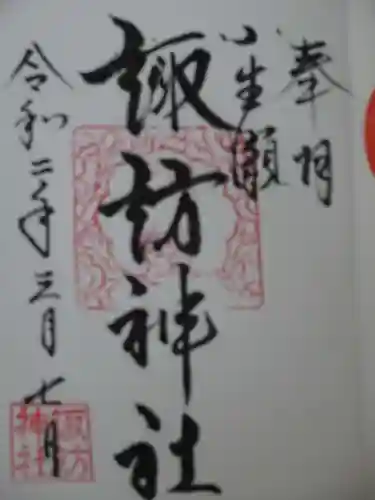 奉拝
小生瀬
諏訪神社
令和二年三月七日
諏方
神社